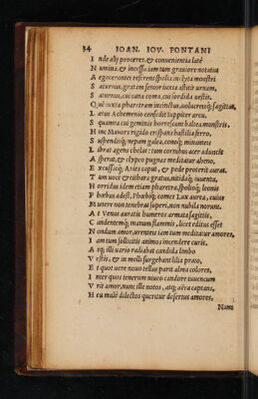 34 IOAN. IOV. PONTANI
I nde alij proceres, & conuenientia latè
N umina, & incessu iam tum grauiore notatus
A egocerontei referens spolia inclyta monstri
S aturnus, gratam senior iuxta astitit urnam,
S aturnus, cui cana coma, cui sordida uestis.
Q ui iuxta pharetram incinctus, uolucresq; sagittas,
L arus Achemenio consedit supplex arcu,
S quamea cui geminis horrescunt baltea monstris.
H inc Mauors rigido crispans hastilia ferro.
S uspenditq; nepam galea, conoq; minantem
L ibrat agens chelas: tum cornibus acer aduncis
A spera, & clypeo pugnas meditatur aheno,
E xcussitq; Aries caput, & pede proterit auras.
T um uoce & cithara gratus, nitidaq; iuuenta,
H orridus idem etiam pharetra, spolioq; leonis
P hoebus adest, Phoebiq; comes Lux aurea, cuius
M unere non tenebræ superi, non nubila norunt.
A t Venus auratis humeros armata sagittis,
C andentemq; manum flammis, licet editus esset
N ondum amor, urenteis iam tum meditatur amores,
I am tum sollicitis animos incendere curis.
A tq; illi uario radiabat candida limbo
V estis, & in molli surgebant lilia prato,
E t quot uere nouo tellus parit alma colores.
I ncer quos tenerum niueo candore iuuencum
V rit amor, nunc ille notos, atq; aëra captans,
H eu malè dilectos queritur desertus amores.
Nunc